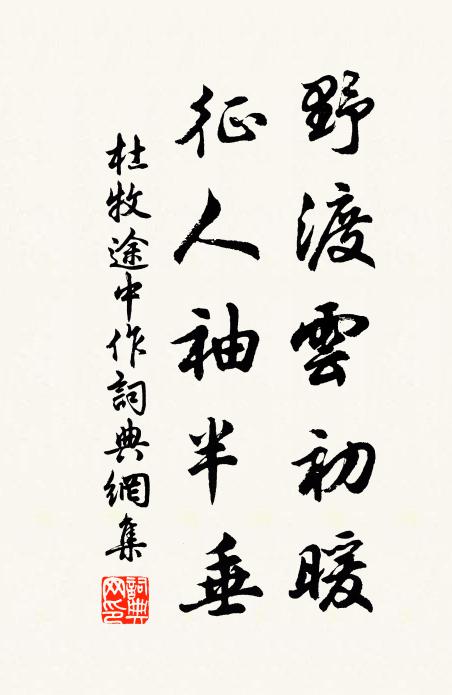 野渡雲初暖
征人袖半垂
杜牧途中作詞典網集
詞典網印